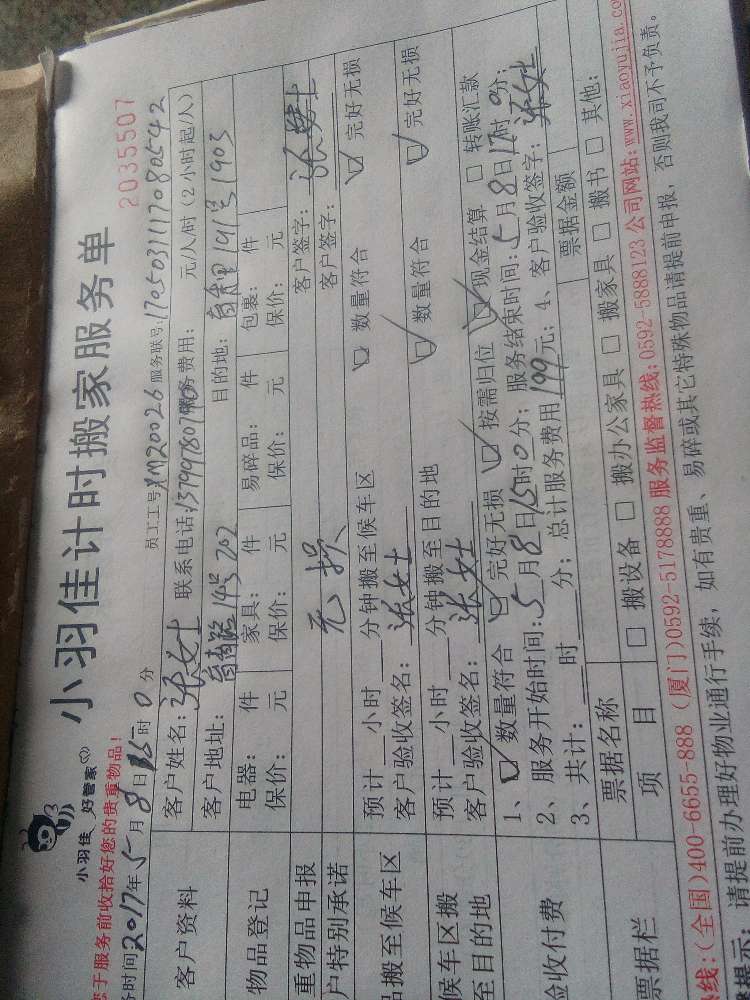 小羽佳计时搬家服务单
2035507
小羽佳 好管家
您于服务前收拾好您的贵重物品!
务时间2017年5月8日15时0分
员工工号:XM20026 服务联号:17050311117080542
客户资料
客户姓名:张女士 联系电话:13799780790 服务费用: 元/人/时(2小时起/人)
客户地址: 目的地: 141号1903
物品登记
电器: 件 家具: 件 易碎品: 件 包裹: 件
保价: 元 保价: 元 保价: 元 保价: 元
重物品申报 客户签字: 张女士
户特别承诺 无损 客户签字:
品搬至候车区
预计 小时 分钟搬至候车区 ☑ 数量符合 ☑ 完好无损
客户验收签名: 张女士
候车区搬至目的地
预计 小时 分钟搬至目的地 ☑ 数量符合 ☑ 完好无损
客户验收签名: 张女士
验收付费
1、☑ 数量符合 ☑ 完好无损 ☑ 按需归位 ☑ 现金结算 □ 转账汇款
2、服务开始时间:5月8日15时0分; 服务结束时间:5月8日17时0分;
3、共计: 时 分; 总计服务费用199元; 4、客户验收签字: 张女士
票据栏
票据名称 票据金额
项目 □ 搬设备 □ 搬办公家具 □ 搬家具 □ 搬书 □ 其他:
线:(全国)400-6655-888 (厦门)0592-5178888 服务监督热线:0592-5888123 公司网站:www.xiaoyujia.co
提示: 请提前办理好物业通行手续, 如有贵重、易碎或其它特殊物品请提前申报, 否则我司不予负责。